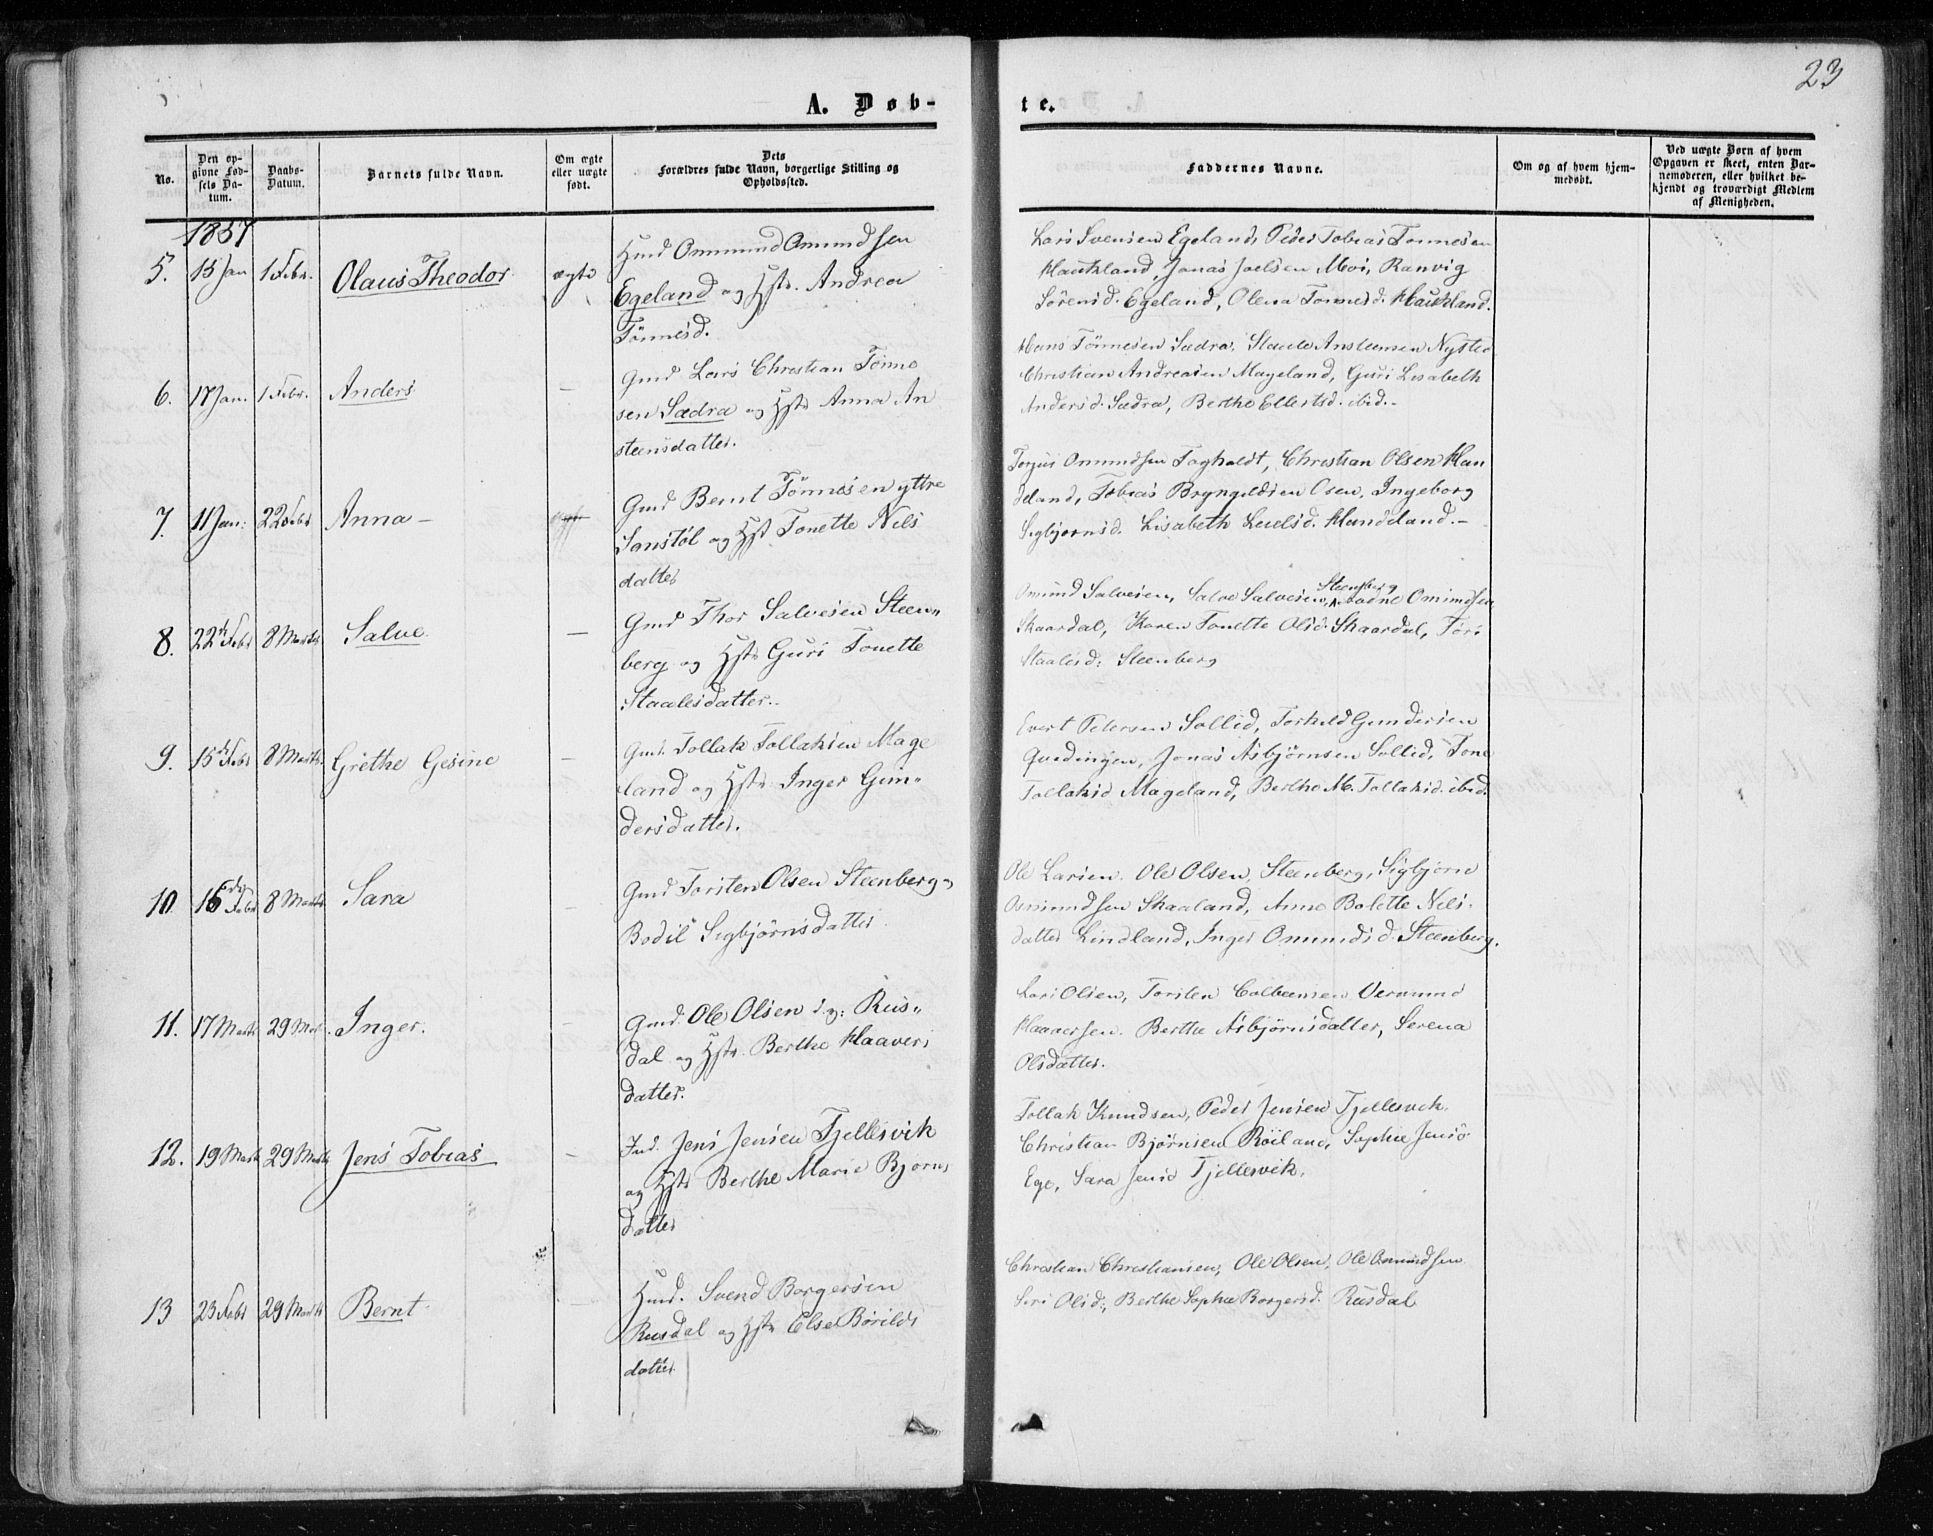 23
A. Døb-
te.
No.
Den op-
givne Fød-
sels Da-
tum.
Daabs-
Datum.
Barnets fulde Navn.
Om ægte
eller uægte
født.
Dets
Forældres fulde Navn, borgerlige Stilling og
Opholdssted.
Faddernes Navne.
Om og af hvem hjem-
medøbt.
Ved uægte Børn af hvem
Opgaven er skeet, enten Bar-
nemoderen, eller hvilket be-
kjendt og troværdigt Medlem
af Menigheden.
1857
5. 15 Jan 1 Febr. Olaus Theodor ægte
Hmd Ommund Omundsen
Egeland og Hstr. Andrea
Tönnesd.
Lars Svensen Egeland, Peder Tobias Tonnesen
Haukland, Jonas Joelsen Moi, Ranvig
Sörensd. Egeland, Olena Tonnesd. Haukland.
6. 17 Jan. 1 Febr. Anders —
Gmd Lars Christian Tönne
sen Sædra og Hstr Anna An
steensdatter.
Hans Tönnesen Sædra, Staale Ansteensen Nysted
Christian Andreasen Mageland, Guri Lisabeth
Andersd. Sædra, Berthe Ellertsd. ibid.-
7. 11 Jan. 22 Febr Anna —
Gmd Bernt Tönnesen yttre
Sanstöl og Hst Tonette Nels
datter
Torjus Omundsen Fagholdt, Christian Olsen Han
deland, Tobias Bryngeldsen Osen, Ingeborg
Sigbjørnsd. Lisabeth Leulsd. Handeland.-
8. 22de Febr 8 Marts Salve. —
Gmd Thor Salvesen Steen„
berg og Hstr Guri Tonette
Staalesdatter..
Omund Salvesen, Salve Salvesen, Steenberg Aadne Omundsen
Skaardal, Karen Tonette Olsd. Skaardal, Tori
Staalesd: Steenberg
9. 15de Febr 8 Marts. Grethe Gesine —
Gmd. Tollak Tollaksen Mage
land og Hstr Inger Gun„
dersdatter.
Evert Petersen Sollid, Torkild Gundersen
Qvedingen, Jonas Asbjørnsen Sollid, Tone
Tollaksd Mageland, Berthe M. Tollaksd. ibid.
10 16de Febr 8 Marts Sara —
Gmd Torsten Olsen Steenberg og
Bodil Sigbjørnsdatter
Ole Larsen. Ole Olsen, Steenberg, Sigbjørn
Osmundsen Skaaland, Anne Bolette Nels-
datter Lindland, Inger Omundsd. Steenberg.
11. 17 Marts 29 Mar. Inger. —
Gmd. Ole Olsen i. y: Rus„
dal og Hstr. Berthe Haavers
datter.
Lars Olsen, Torsten Colbeensen Vermund
Haaversen. Berthe Asbjørnsdatter, Serena
Olsdatter.
12. 19 Marts 29 Marts Jens Tobias —
Ind. Jens Jensen Tjellesvik
og Hstr Berthe Marie Bjorns
datter
Tollak Knudsen, Peder Jensen Tjellesvik,
Christian Bjørnsen Röiland, Sophie Jensd
Ege, Sara Jensd Tjellesvik.
13 23 Febr 29 Marts Bernt. —
Hmd. Svend Borgersen
Rusdal og Hstr Else Börilds
datter
Christian Christiansen, Ole Olsen, Ole Osmundsen
Siri Olsd., Berthe Sophie Borgersd. Rusdal